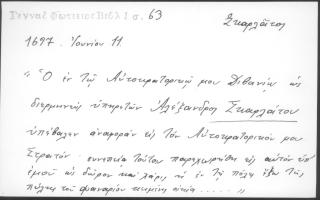 Γενναδ. Φωτεινος Βιβλ 1 σ. 63
Σκαρλάτος
1697. Ἰουνίου 11
"Ὁ ἐν τῷ Αὐτοκρατορικῷ μου Διβανίῳ ὡς
διερμηνεὺς ὑπηρετῶν Ἀλέξανδρος Σκαρλάτου
ὑπέβαλεν ἀναφορὰν εἰς τὸν Αὐτοκρατορικόν μου
Στρατόν· συνεπείᾳ τούτου παρεχωρήθη εἰς αὐτὸν ὑπ'
ἐμοῦ ὡς δῶρον καὶ χάρις ἡ ἐν τῇ πόλει ἔξω τῆς
πύλης τοῦ Φαναρίου κειμένη οἰκία ..... "